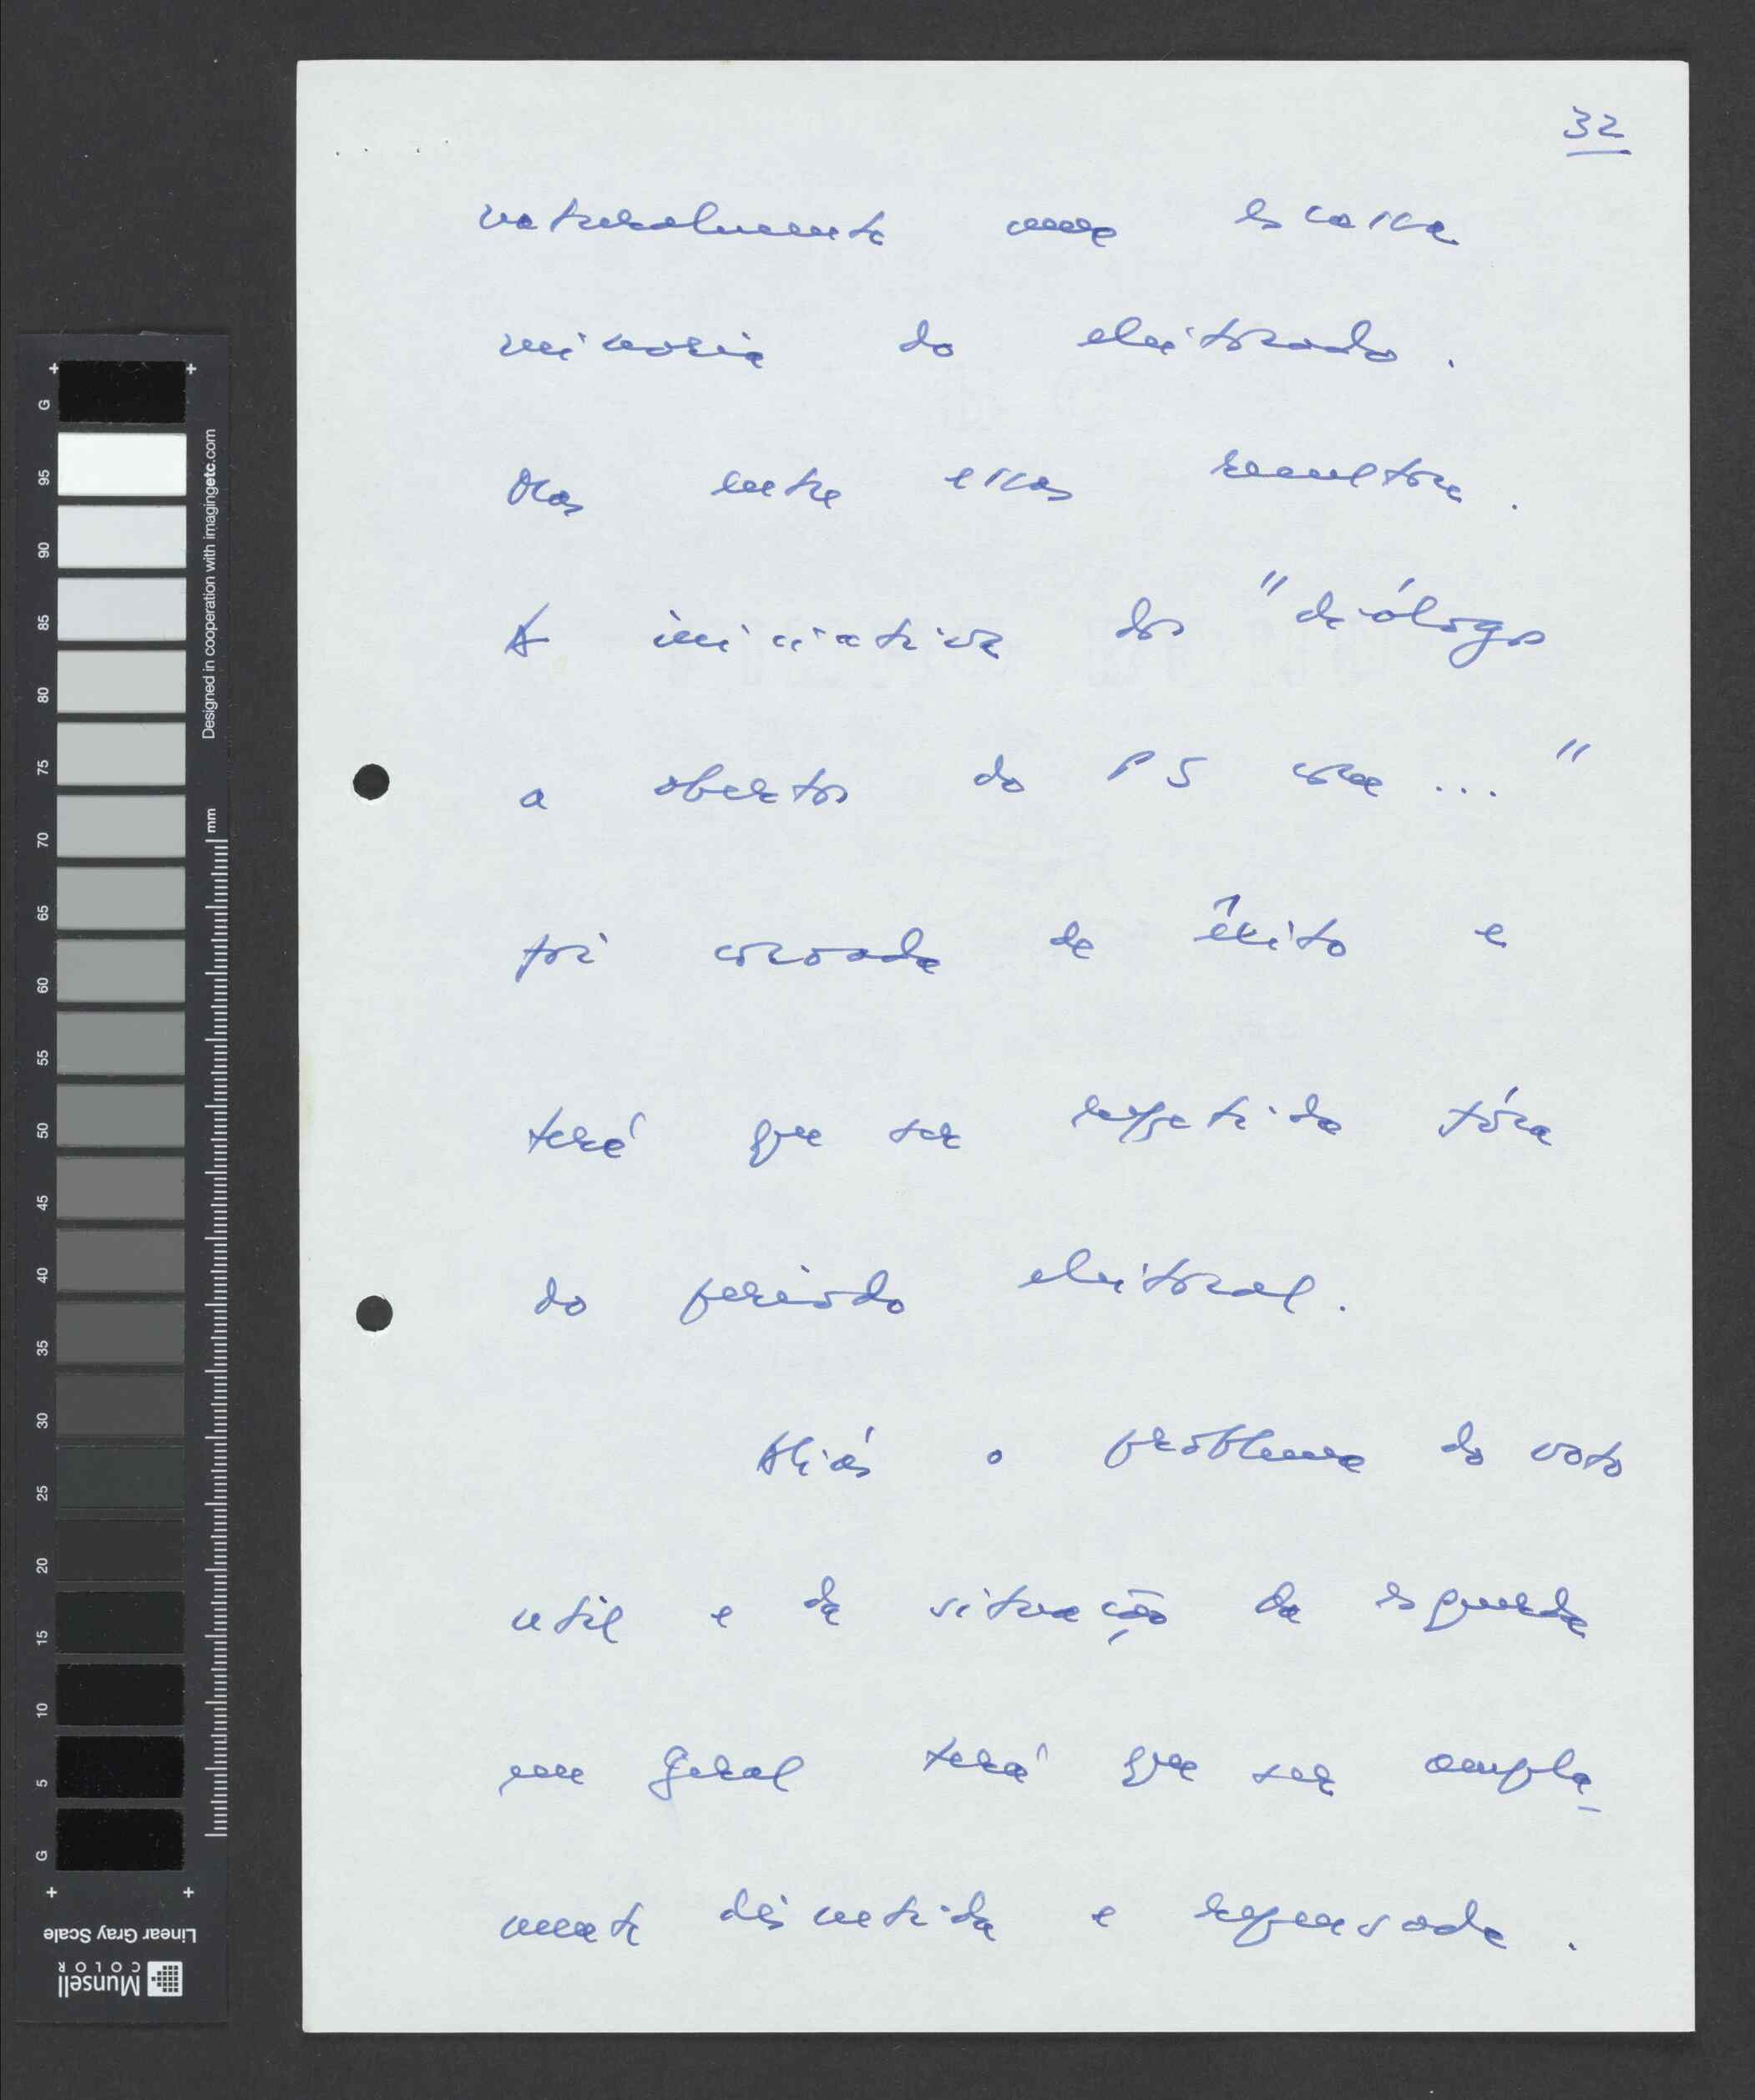 32
naturalmente uma escassa
minoria do eleitorado.
Mas entre essas resultou.
A iniciativa dos "diálogos
a abertos do PS com ..."
foi coroada de êxito e
terá que ser repetida fóra
do período eleitoral.
Aliás o problema do voto
util e da situação da esquerda
em geral terá que ser ampla-
mente discutida e repensada.
G
95
90
85
80
75
70
65
60
55
50
45
40
35
30
25
20
15
10
5
G
Designed in cooperation with imagingetc.com
mm
Linear Gray Scale
Munsell
COLOR